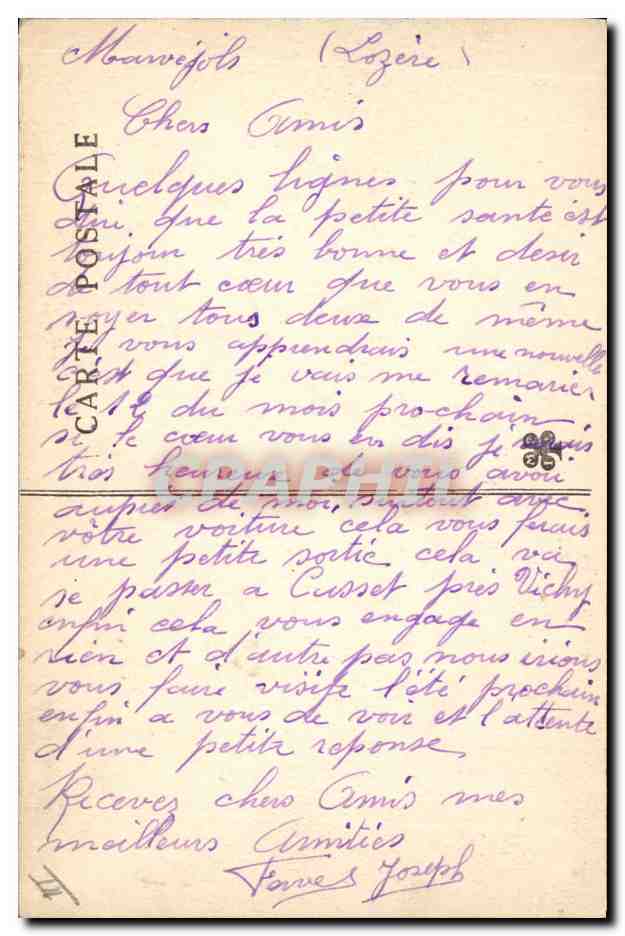 Marvejols (Lozère)
Chers Amis
Quelques lignes pour vous
dire que la petite santé est
toujour très bonne et desir
de tout cœur que vous en
soyer tous deux de même
je vous apprendrais une nouvelle
c'est que je vais me remarier
le 12 du mois prochain
si le cœur vous en dis je serais
très heureux de vous avoir
auprès de moi surtout avec
vôtre voiture cela vous ferais
une petite sortie cela va
se passer a Cusset près Vichy
enfin cela vous engage en
rien et d'autre pas nous irions
vous faire visite l'été prochain
enfin a vous de voir et l'attente
d'une petite reponse
Recevez chers Amis mes
meilleurs Amitiés
Joseph
CARTE POSTALE
CPAPHIL